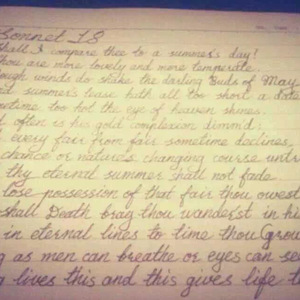 Sonnet 18
Shall I compare thee to a summer's day?
Thou are more lovely and more temperate.
ough winds do shake the darling Buds of May
d summer's lease hath all too short a date
metime too hot the eye of heaven shines
t often is his gold complexion dimm'd.
every fair from fair sometime declines,
chance or nature's changing course untri
thy eternal summer shall not fade
lose possession of that fair thou owest
shall Death brag thou wanderst in hi
in eternal lines to time thou Grow
g as men can breathe or eyes can se
g lives this and this gives life t